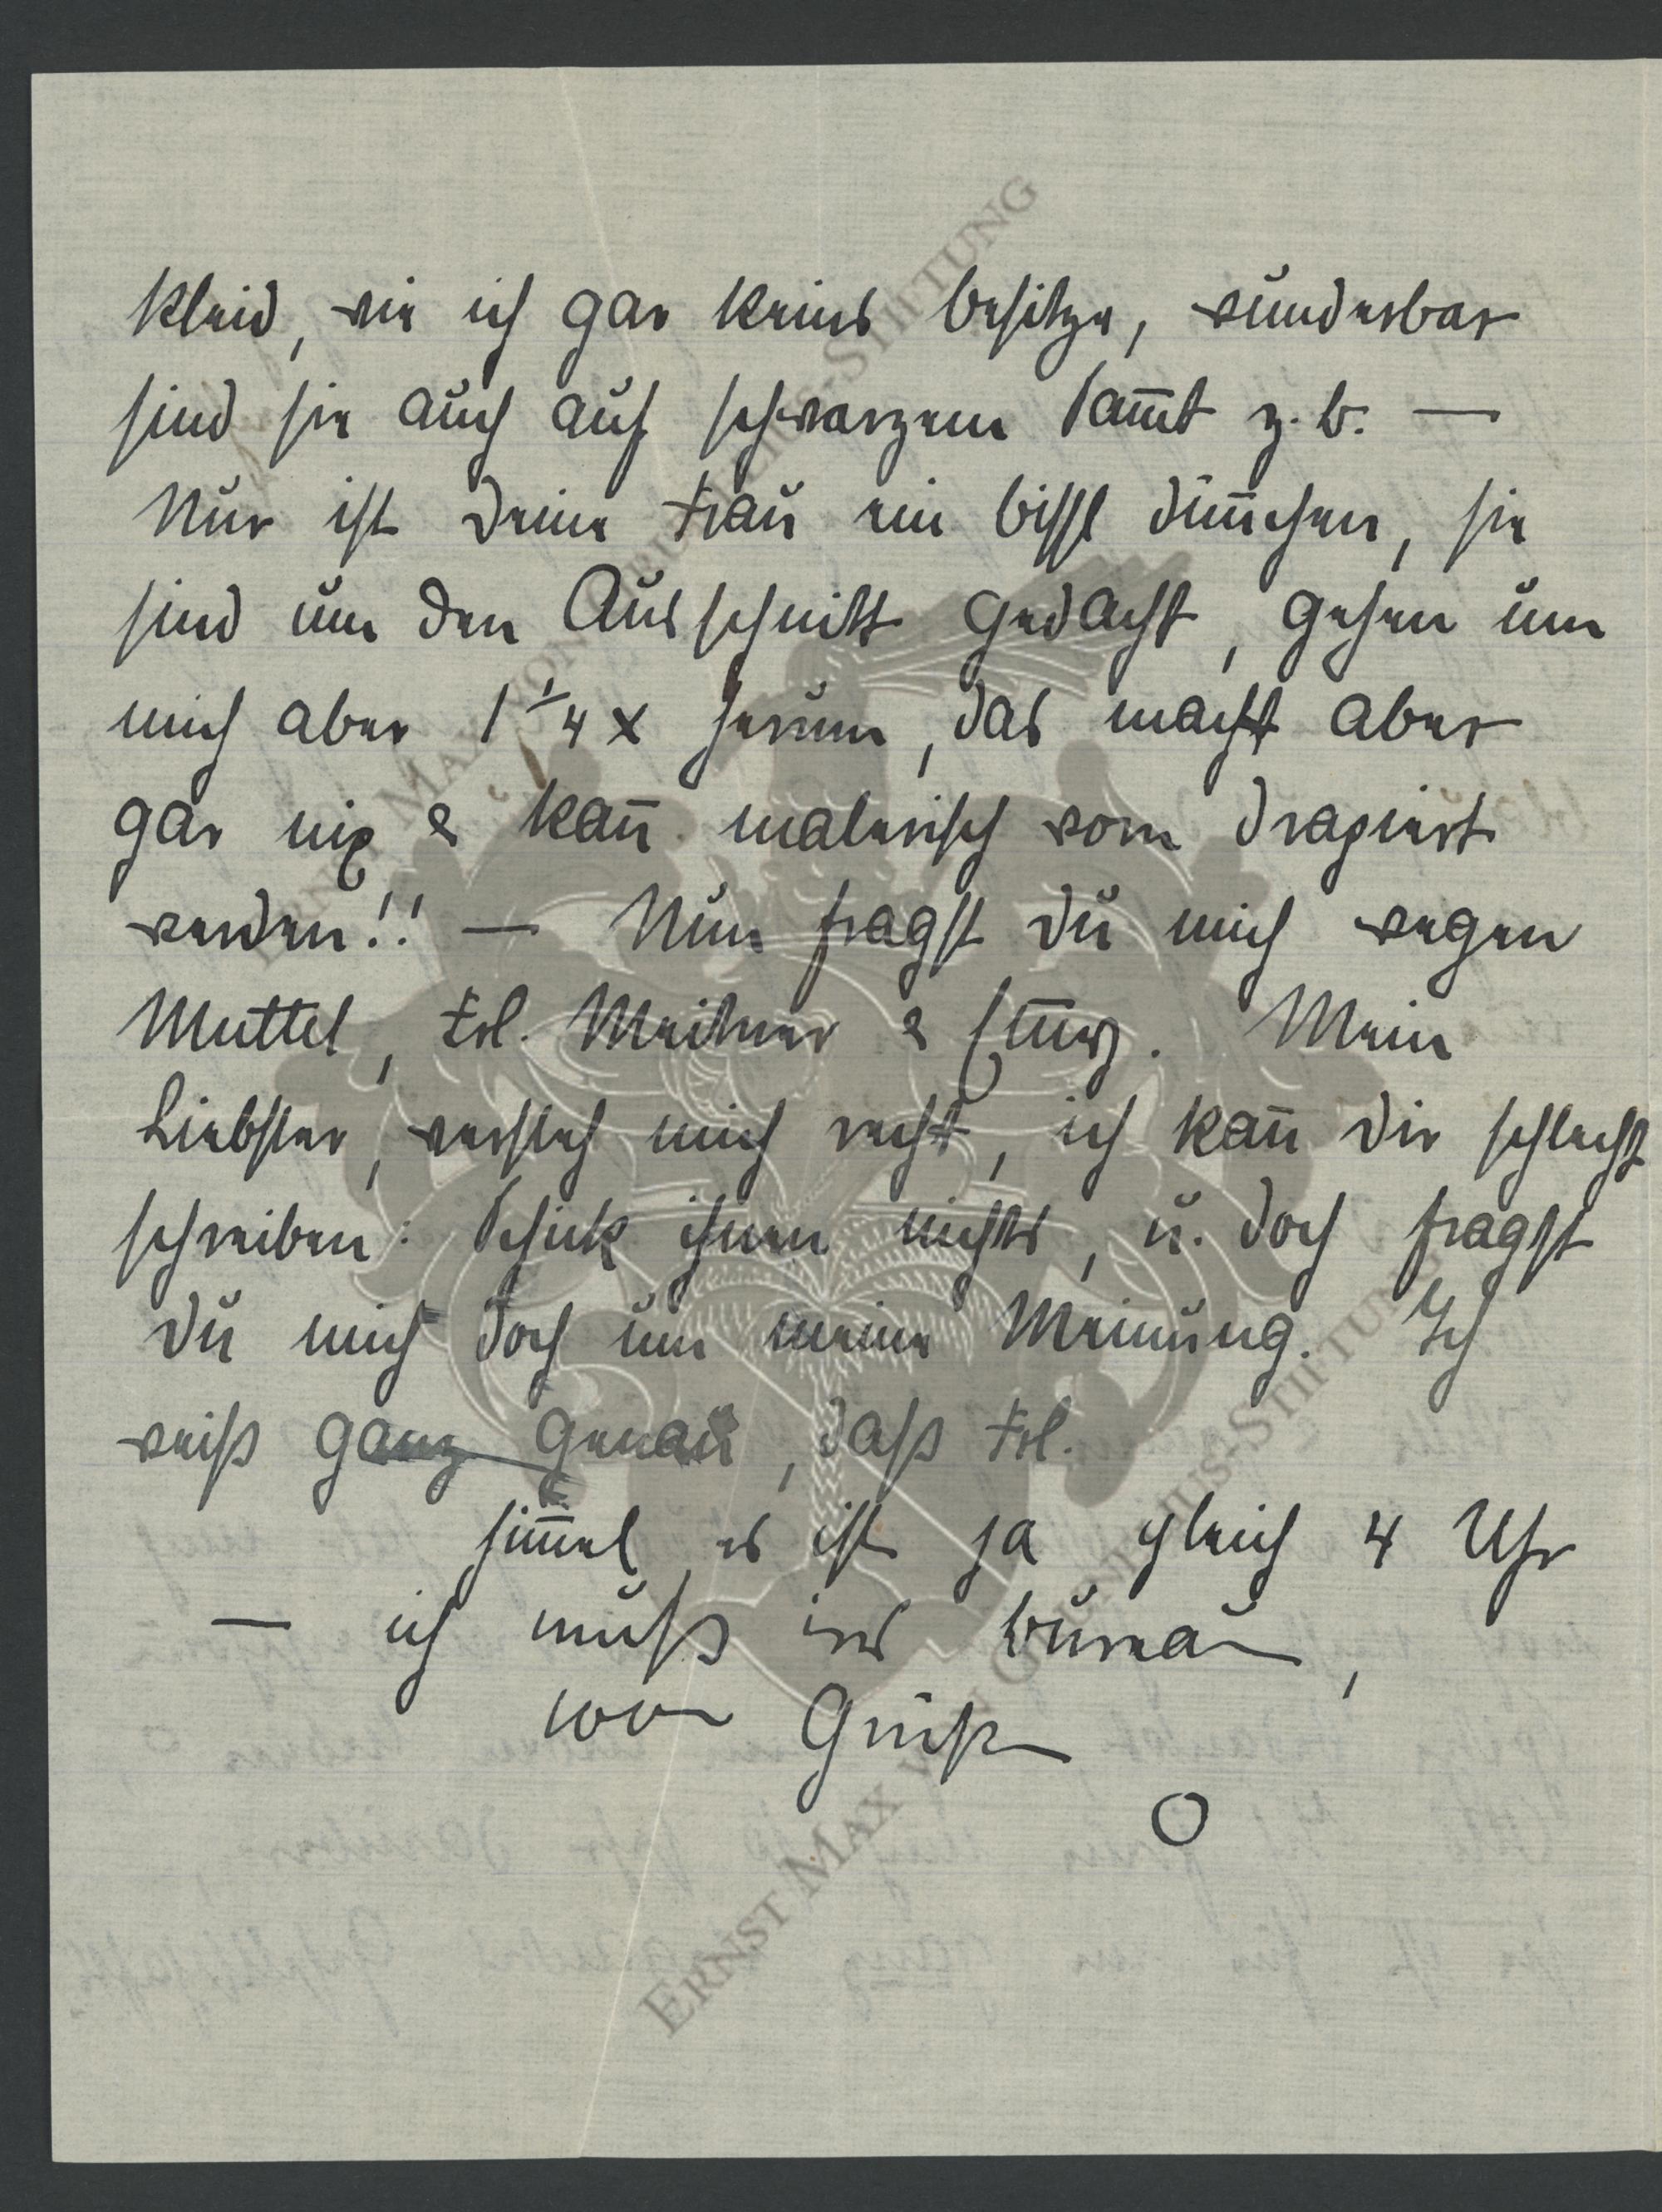 Kleid, wie ich gar keins besitze, wunderbar
sind sie auch auf schwarzem Sam̅t z. B. —
Nur ist Deine Frau ein bissl dün̅chen, sie
sind um den Ausschnitt gedacht, gehen um
mich aber 1 1/4 x herum, das macht aber
gar nix & kan̅ malerisch vorn drapiert
werden!! — Nun fragst Du mich wegen
Muttel, Frl. &. Mein
Liebster, versteh mich recht, ich kan̅ Dir schlecht
schreiben: Schick ihnen nichts, u. doch fragst
Du mich doch um meine Meinung. Ich
weiß ganz genau, daß Frl.
Him̅el es ist ja gleich 4 Uhr
— ich muß ins Bureau,
1000 Grüße
O
ERNST MAX VON GRUNELIUS-STIFTUNG
ERNST MAX VON GRUNELIUS-STIFTUNG